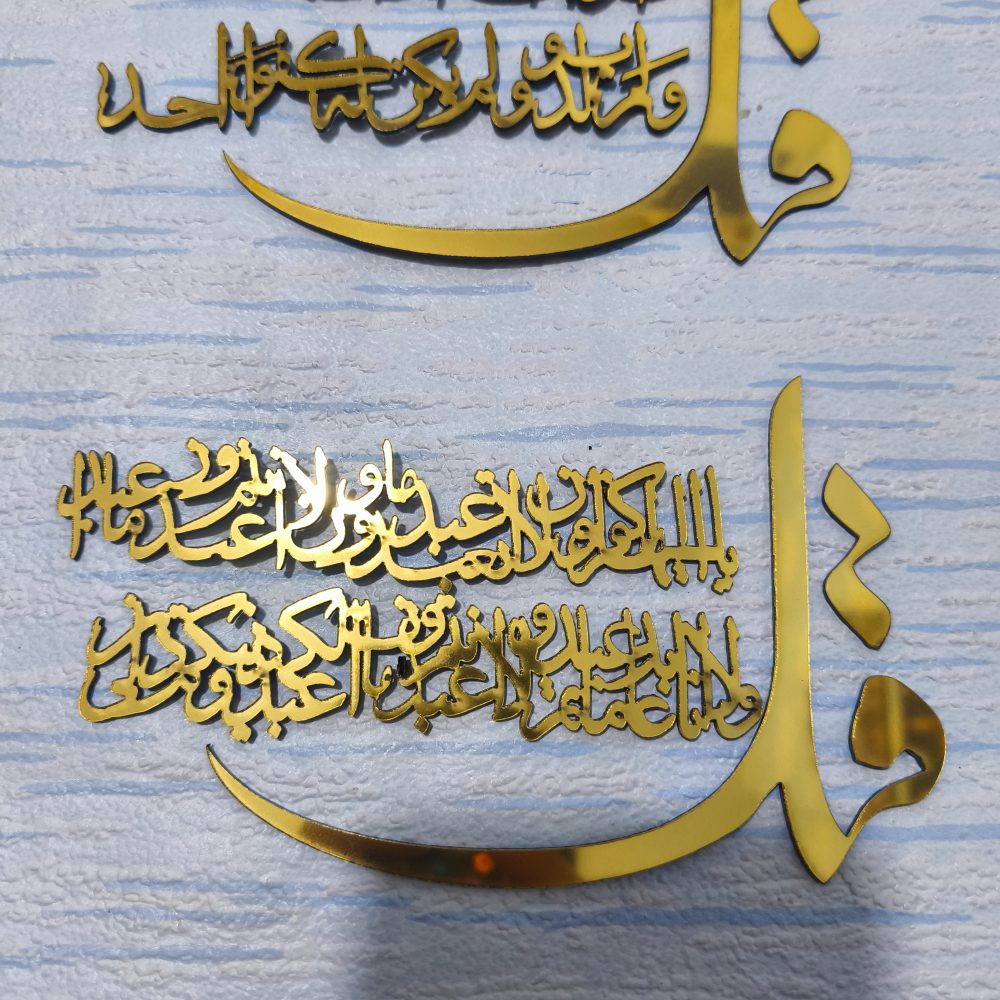 قل
ولم يولد ولم يكن له كفوا احد
قل
يا ايها الكافرون لا اعبد ما تعبدون ولا انتم عابدون ما اعبد
ولا انا عابد ما عبدتم ولا انتم عابدون ما اعبد لكم دينكم ولي دين